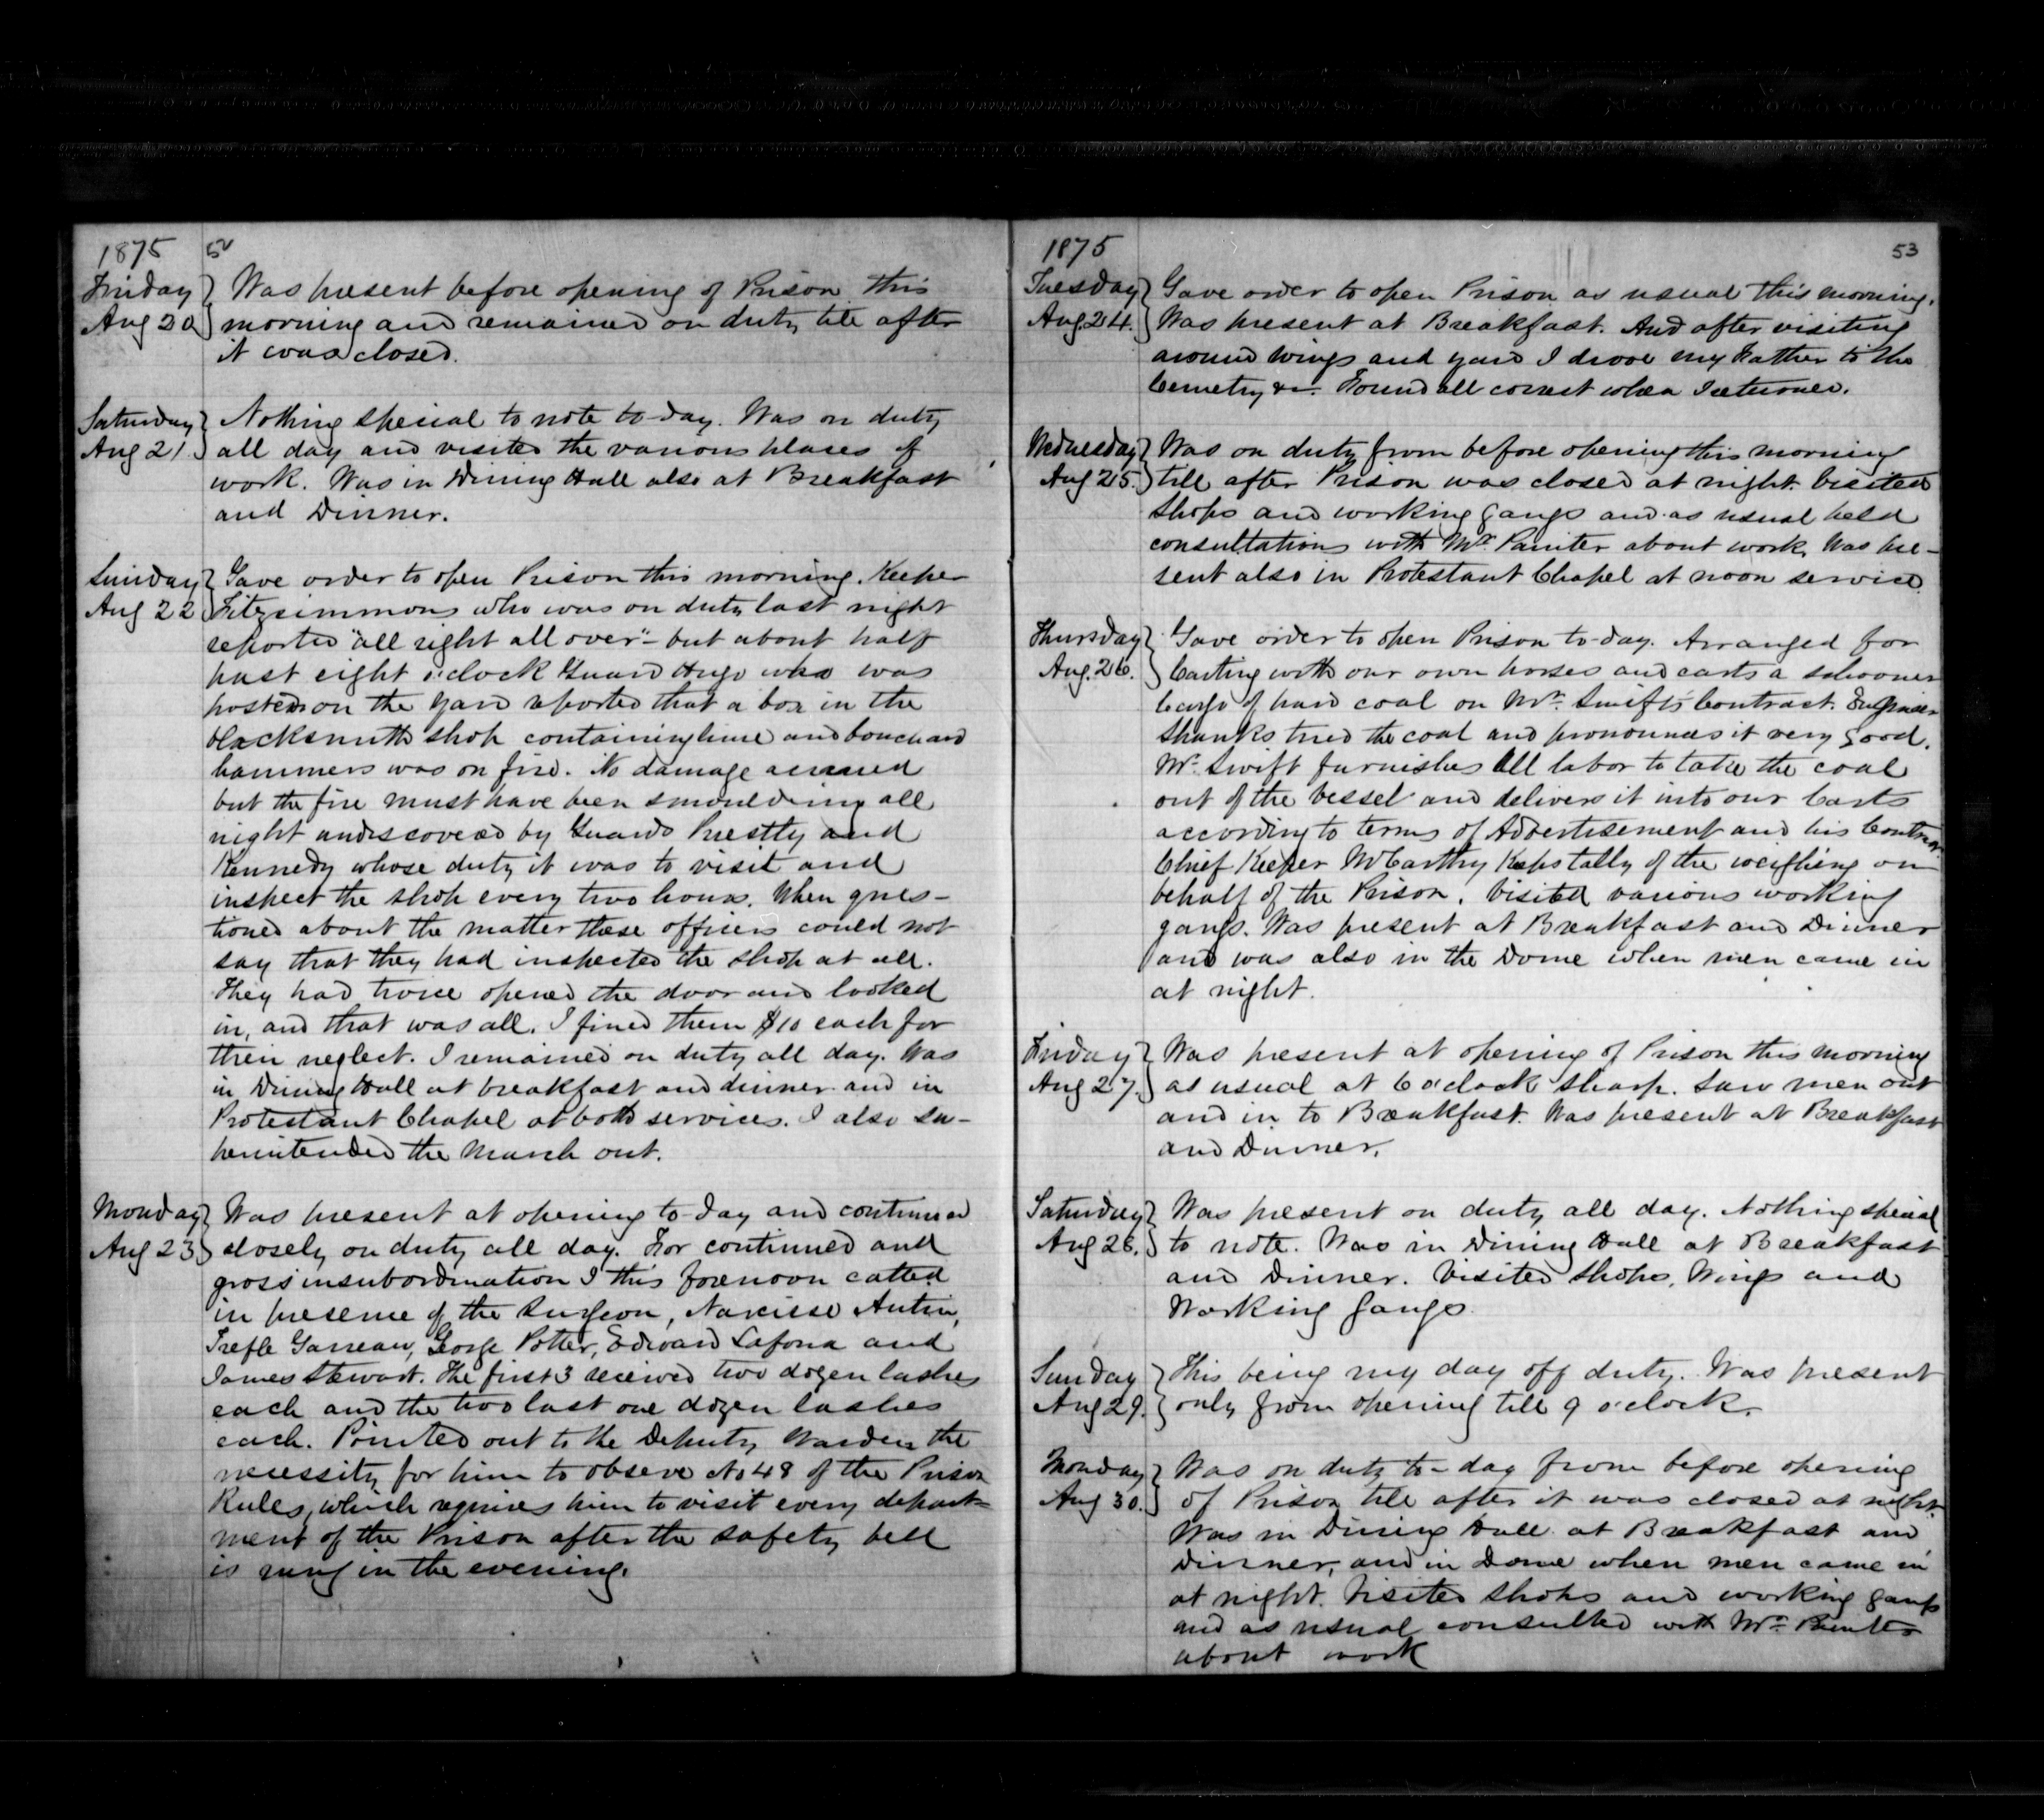 1875 52
Friday Aug 20 Was present before opening of Prison this
morning and remained on duty till after
it was closed.
Saturday Aug 21. Nothing special to note to-day. Was on duty
all day and visited the various places of
work. Was in Dining Hall also at Breakfast
and Dinner.
Sunday Aug 22 Gave order to open Prison this morning. Keeper
Fitzsimmons who was on duty last night
reported "all right all over" - but about half
past eight o'clock Guard Hugo who was
posted on the yard reported that a box in the
blacksmith shop containing lime and bouchard
hammers was on fire. No damage accrued
but the fire must have been smouldering all
night undiscovered by Guards Priestly and
Kennedy whose duty it was to visit and
inspect the shop every two hours. When ques-
tioned about the matter these officers could not
say that they had inspected the shop at all.
They had twice opened the door and looked
in, and that was all. I fined them $10 each for
their neglect. I remained on duty all day. Was
in Dining Hall at breakfast and dinner and in
Protestant Chapel at both services. I also su-
perintended the March out.
Monday Aug 23 Was present at opening to-day and continued
closely on duty all day. For continued and
gross insubordination I this forenoon catted
in presence of the Surgeon, Narcisse Autin,
Trefle Garreau, George Potter, Edward Lafona and
James Stewart. The first 3 received two dozen lashes
each and the two last one dozen lashes
each. Pointed out to the Deputy Warden the
necessity for him to observe No 48 of the Prison
Rules, which requires him to visit every depart-
ment of the Prison after the safety bell
is rung in the evening.
1875 53
Tuesday Aug 24. Gave order to open Prison as usual this morning.
Was present at Breakfast. And after visiting
around wings and yard I drove my Father to the
Cemetry &c. Found all correct when I returned.
Wednesday Aug 25. Was on duty from before opening this morning
till after Prison was closed at night. Visited
shops and working gangs and as usual held
consultations with Mr. Painter about work. Was pre-
sent also in Protestant Chapel at noon service.
Thursday Aug. 26. Gave order to open Prison to-day. Arranged for
Carting with our own horses and carts a schooner
Cargo of hard coal on Mr. Swift's Contract. Engineer
Shanks tried the coal and pronounces it very good.
Mr. Swift furnishes all labor to take the coal
out of the vessel and delivers it into our Carts
according to terms of Advertisement and his Contract.
Chief Keeper McCarthy Keeps tally of the weighing on
behalf of the Prison. Visited various working
gangs. Was present at Breakfast and Dinner
and was also in the Dome when men came in
at night.
Friday Aug 27. Was present at opening of Prison this morning
as usual at 6 o'clock sharp. Saw men out
and in to Breakfast. Was present at Breakfast
and Dinner.
Saturday Aug 28. Was present on duty all day. Nothing special
to note. Was in Dining Hall at Breakfast
and Dinner. Visited shops, Wings and
Working Gangs.
Sunday Aug 29. This being my day off duty. Was present
only from opening till 9 o'clock.
Monday Aug 30. Was on duty to-day from before opening
of Prison till after it was closed at night.
Was in Dining Hall at Breakfast and
Dinner, and in Dome when men came in
at night. Visited shops and working gangs
and as usual consulted with Mr. Painter
about work